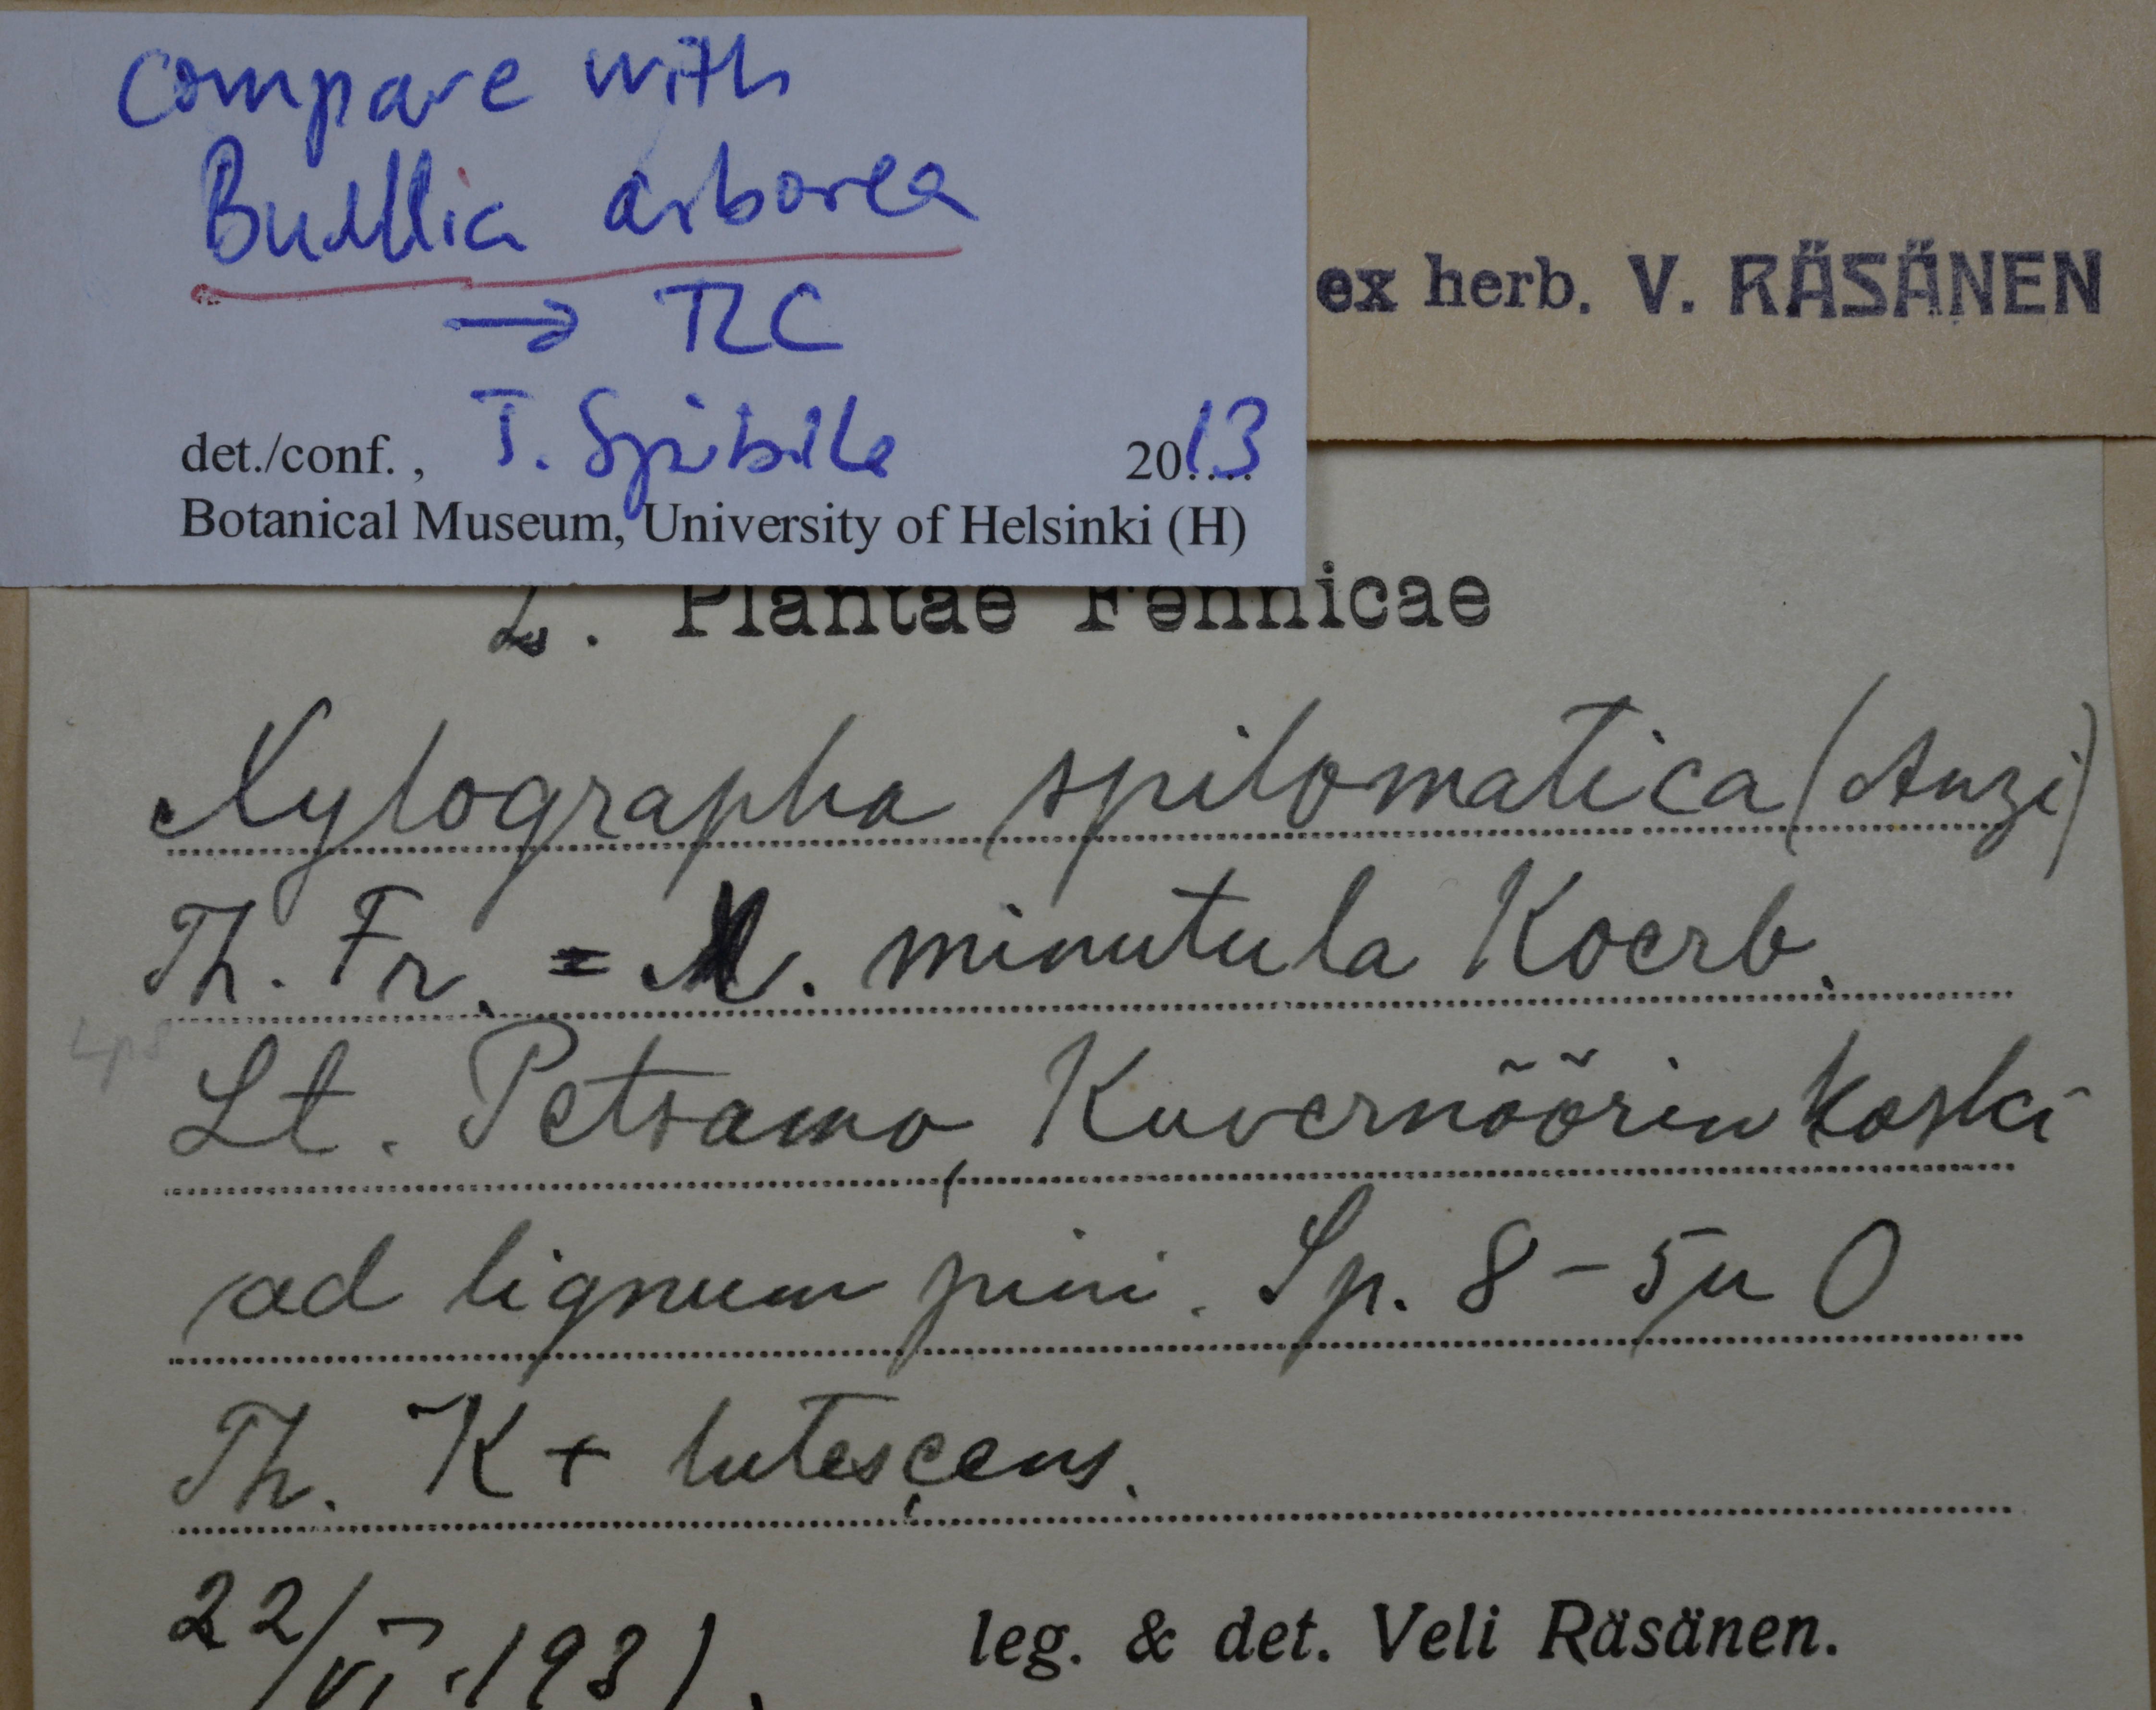 Compare with
Buellia arborea
→ TLC
det./conf. , T. Spribille 2013
Botanical Museum, University of Helsinki (H)
ex herb. V. RÄSÄNEN
L. Plantae Fennicae
Xylographa spilomatica (Anzi)
Th. Fr. = X. minutula Koerb.
Lt. Petsamo, Kuvernöörinkoski
ad lignum pini. Sp. 8-5µ O
Th. K + lutescens.
22/VI.1931.
leg. & det. Veli Räsänen.